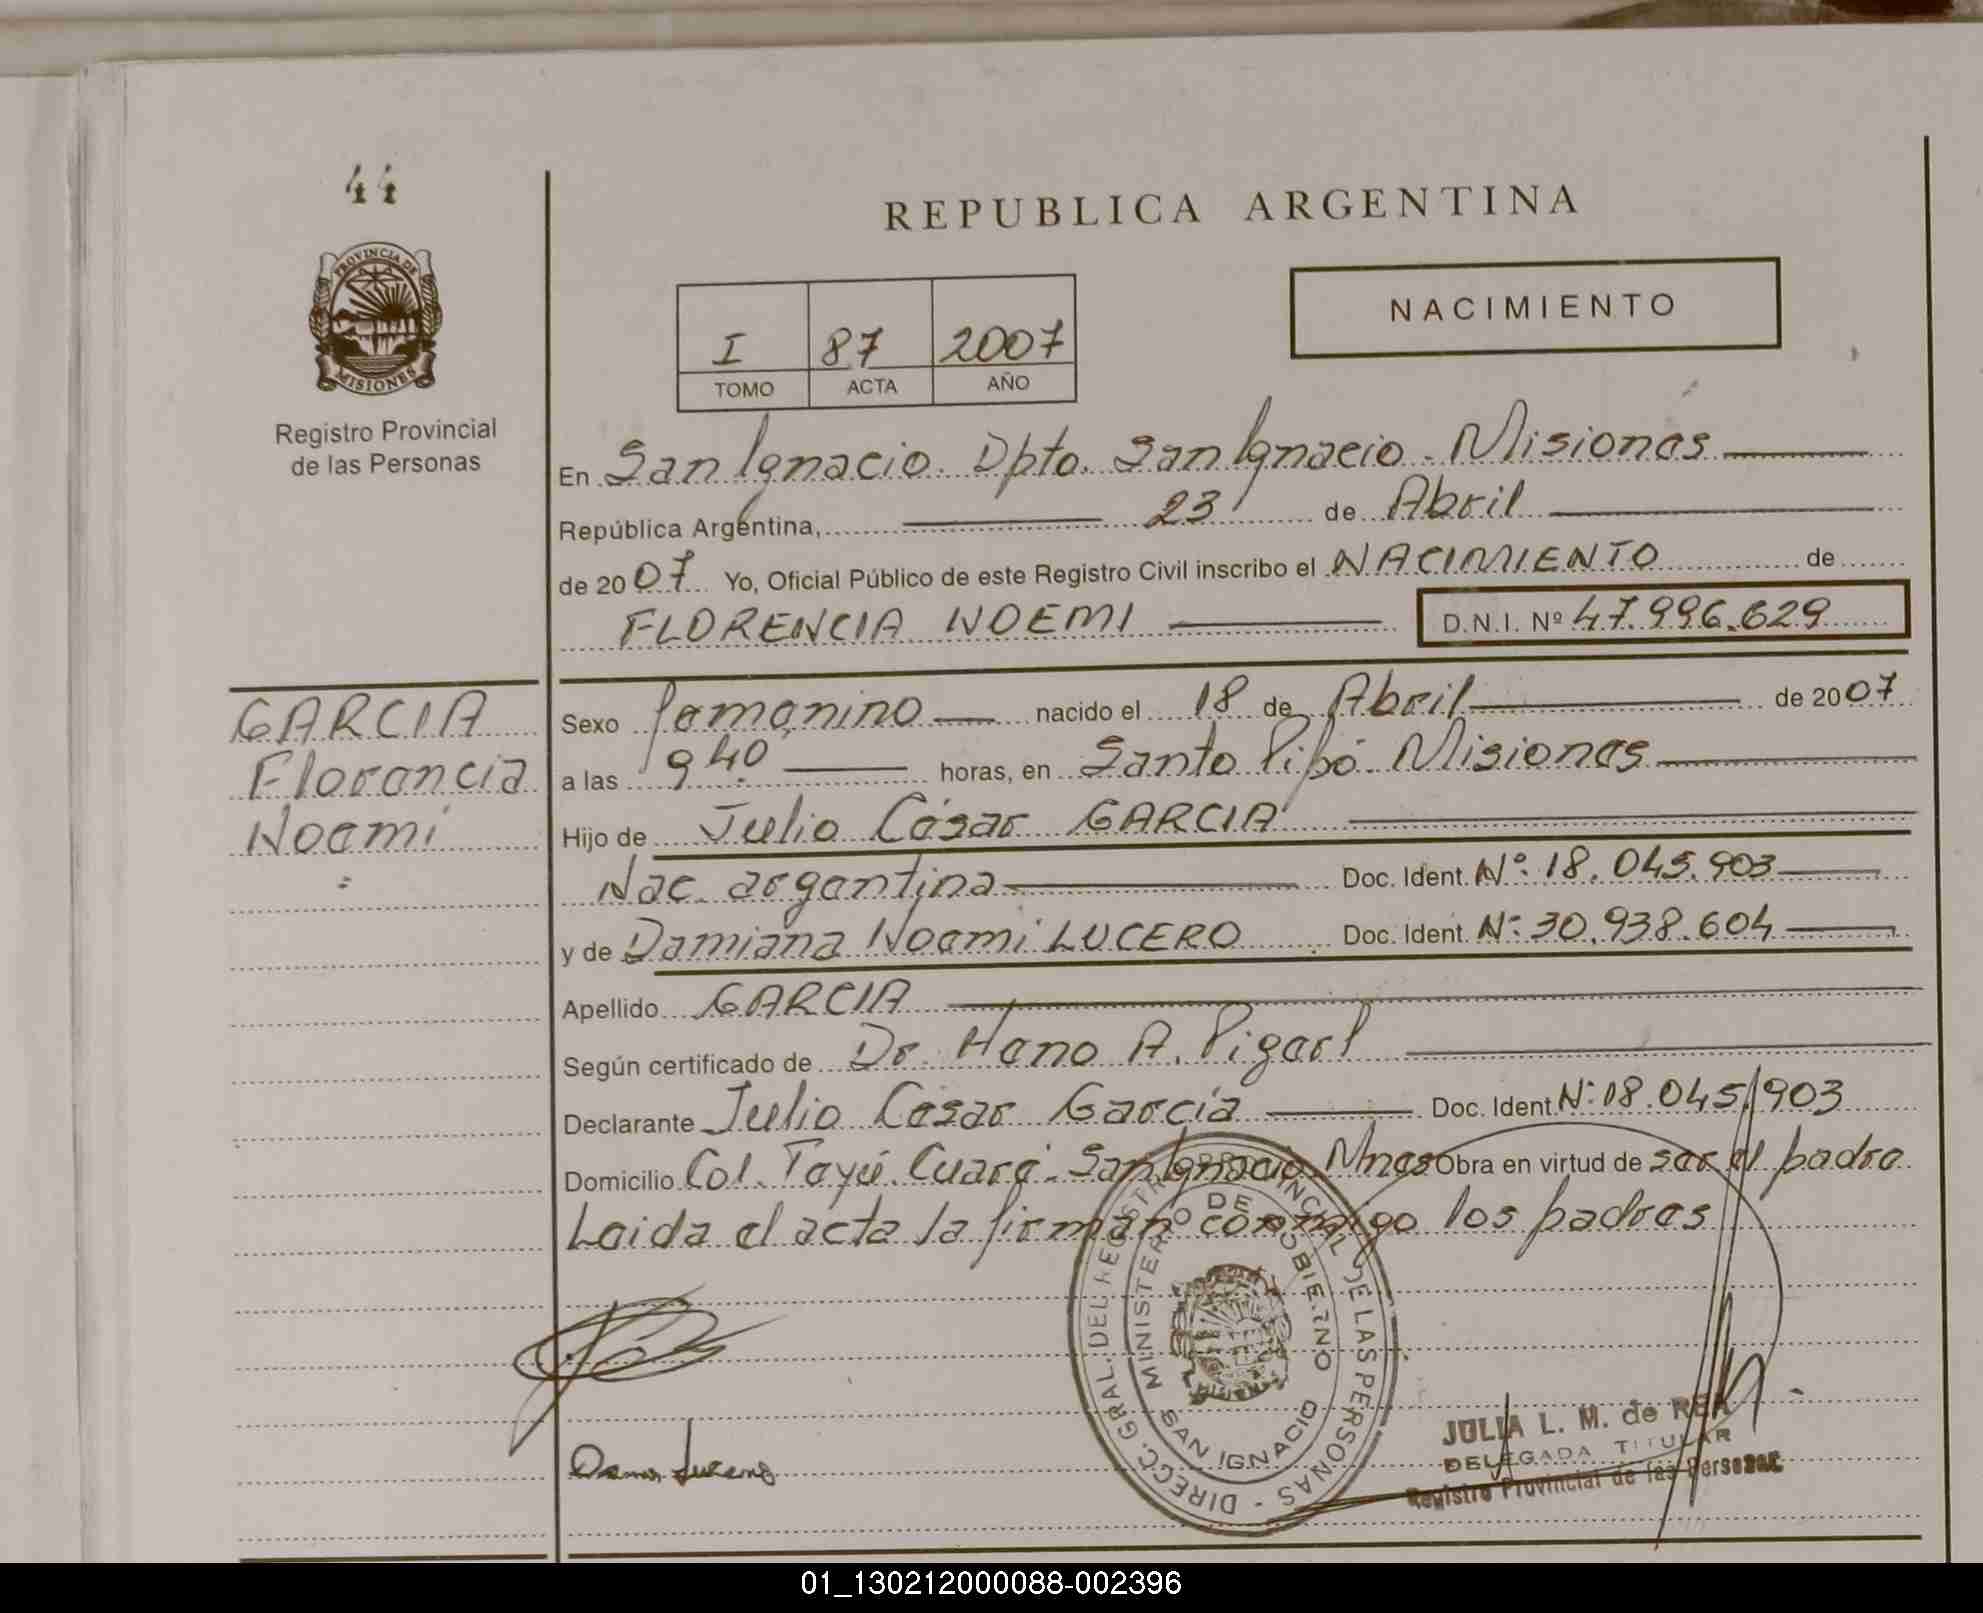 44
PROVINCIA DE
MISIONES
Registro Provincial
de las Personas
REPUBLICA ARGENTINA
NACIMIENTO
I 87 2007
TOMO ACTA AÑO
En San Ignacio. Dpto. San Ignacio. Misiones
República Argentina, 23 de Abril
de 2007 Yo, Oficial Público de este Registro Civil inscribo el NACIMIENTO de
FLORENCIA NOEMI D.N.I. Nº 47.996.629
GARCIA
Florencia
Noemí
Sexo femenino nacido el 18 de Abril de 2007
a las 9 40 horas, en Santo Pipó. Misiones
Hijo de Julio César GARCIA
Nac. argentina Doc. Ident. Nº: 18.045.903
y de Damiana Noemi LUCERO Doc. Ident. Nº: 30.938.604
Apellido GARCIA
Según certificado de Dr. A.
Declarante Julio César García Doc. Ident. Nº: 18.045.903
Domicilio Col. Teyú Cuaré. San Ignacio. Mnes Obra en virtud de ser el padre
Leida el acta la firman conmigo los padres
DIRECC. GRAL. DEL REGISTRO PROVINCIAL DE LAS PERSONAS
MINISTERIO DE GOBIERNO
SAN IGNACIO
JULIA L. M. de REA
DELEGADA TITULAR
Registro Provincial de las Personas
01_130212000088-002396